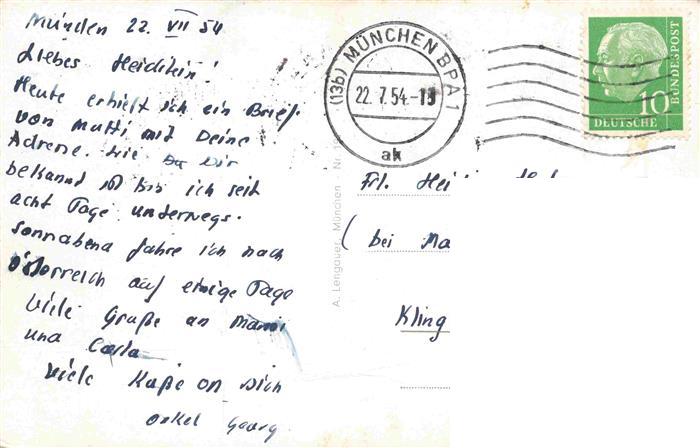 München 22. VII 54
Liebes Heidilein!
Heute erhielt ich ein Brief
von Mutti mit Deine
Adresse. Wie Du Dir
bekannt ist bin ich seit
acht Tage unterwegs.
Sonnabend fahre ich nach
Österreich auf einige Tage
Viele Grüße an Mammi
und Carla
Viele Küße an Dich
Onkel Georg
(13b) MÜNCHEN BPA 1
22.7.54.-13
ak
10
DEUTSCHE
BUNDESPOST
A. Lengauer, München Nr.
Frl.
( bei Ma
Kling